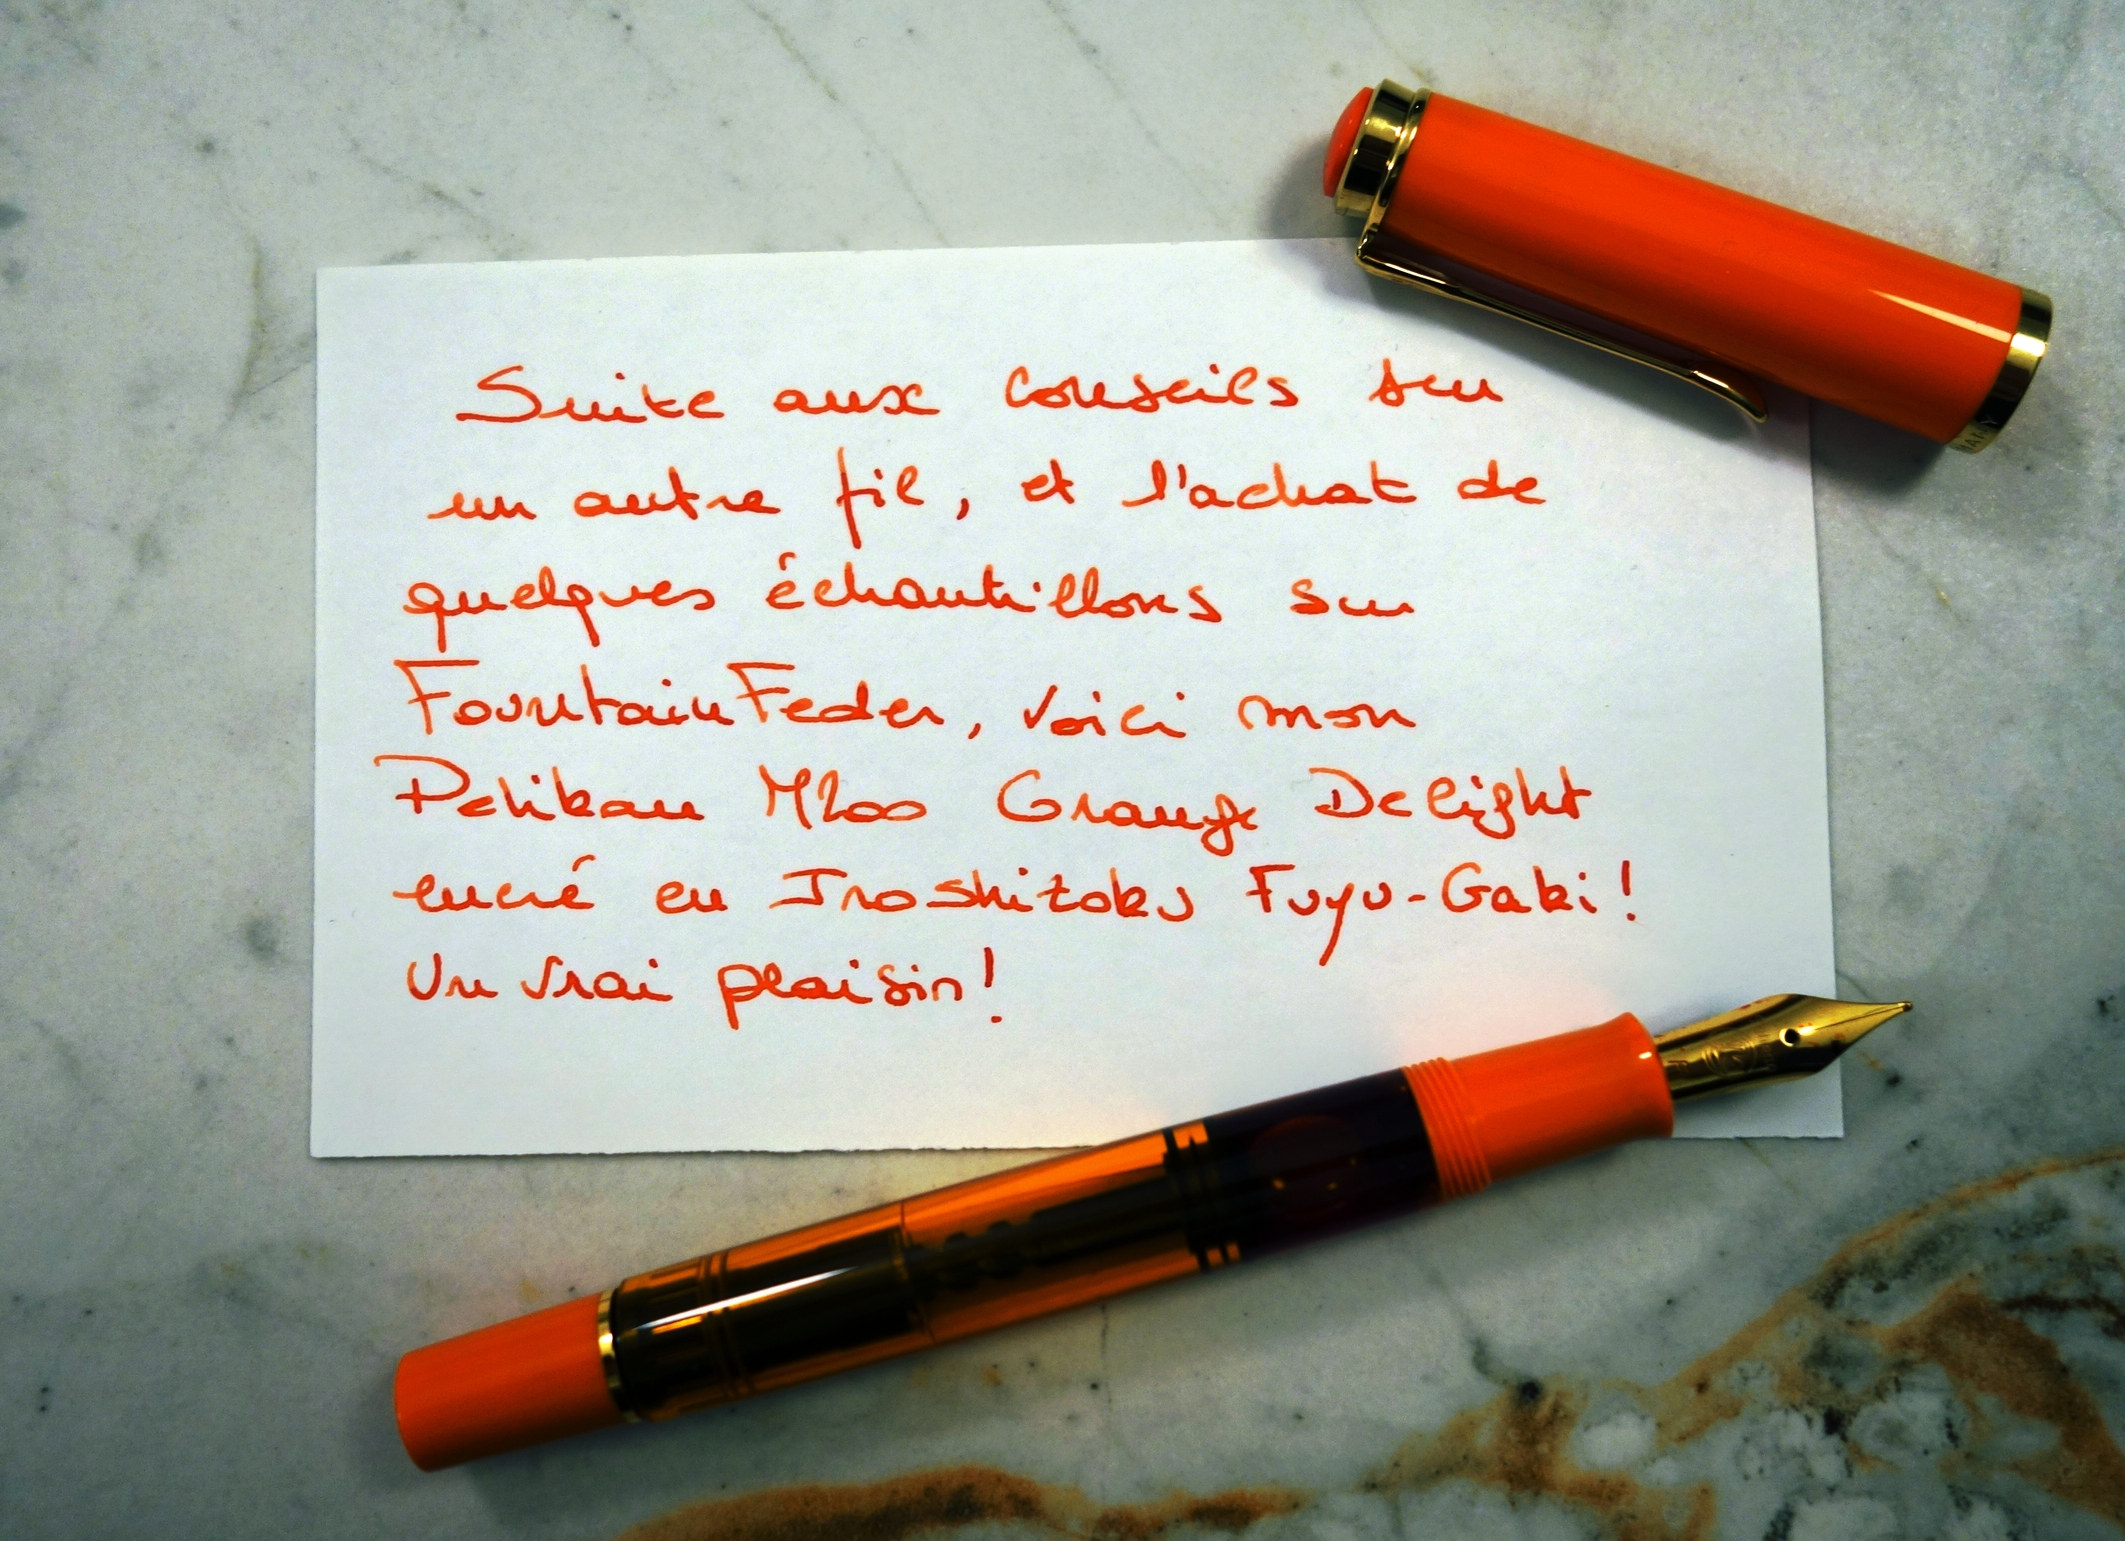 Suite aux conseils sur
un autre fil, et l'achat de
quelques échantillons sur
FountainFeder, voici mon
Pelikan M200 Orange Delight
encré en Iroshizoku Fuyu-Gaki !
Un vrai plaisir !